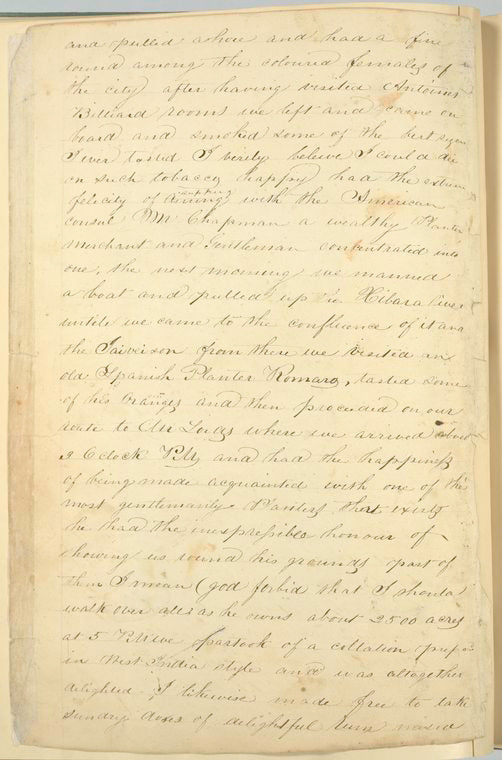 and pulled ashore and had a fine
round among the coloured females of
the city after having visited Antoines
Billiard rooms we left and came on
board and smoked some of the best segars
I ever tasted I verily believe I could die
on such tobacco happy had the extreme
felicity of supping with the American
consul Mr Chapman a wealthy Planter
Merchant and Gentleman concentrated into
one, the next morning we manned
a boat and pulled up the Xibara river
untile we came to the confluence of it and
the from there we visited an
old Spanish Planter Romaro, tasted some
of his Oranges and then proceeded on our
route to where we arrived about
Oclock P.M, and had the happiness
of being made acquainted with one of the
most gentlemanly Planters that exists
he had the inexpressible honour of
showing us round his grounds part of
them I mean (god forbid that I should
walk over all) as he owns about 2500 acres
at 5 P.M we partook of a collation prepd
in West India style and was altogether
delighted I likewise made free to take
sundry doses of delightful rum